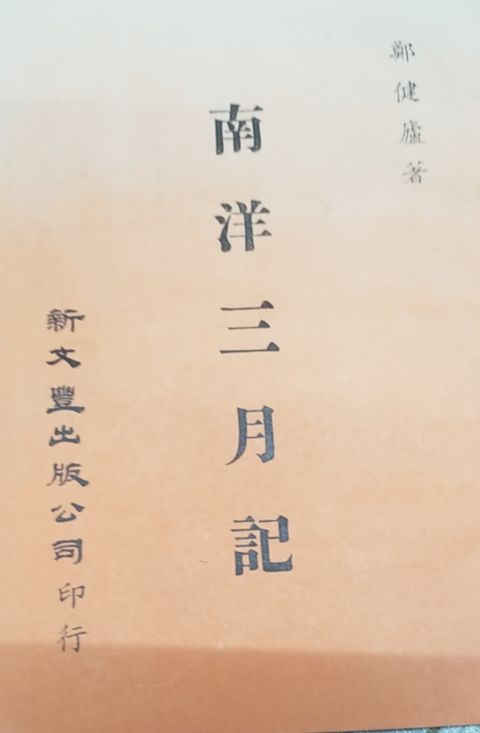 鄭健廬著
南洋三月記
新文豐出版公司印行